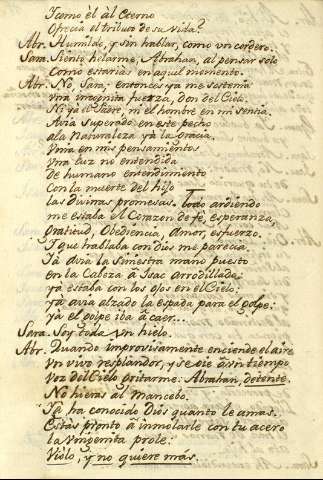 Y como èl àl Eterno
Ofrecia el tributo de su vida?
Abr. Humilde, y sin hablar, como un cordero.
Sara. Siento helarme, Abrahan, al pensar solo
Como estarias en aquel momento.
Abr. No, Sara; entonces ya me sostenia
una incognita fuerza, don del Cielo.
Ni yà el Padre, ni el hombre en mi sentia.
Avia superado en este pecho
ala Naturaleza yà la Gracia.
Vnia en mis pensamientos
una luz no entendida
de humano entendimiento
con la muerte del hijo
las divinas promesas. Todo ardiendo
me estaba el Corazon de fè, esperanza,
gratitud, Obediencia, amor, esfuerzo.
Y que hablaba con dios me parecia.
Yà avia la siniestra mano puesto
en la Cabeza à Isac arrodillado;
yà estaba con los ojos en el Cielo;
yà avia alzado la espada para el golpe:
yà el golpe iba à caer...
Sara. Soy toda un hielo.
Abr. Quando improvisamente enciende el aire
un vivo resplandor, y se oie à un tiempo
voz del Cielo gritarme: Abrahan, detente.
No hieras al Mancebo.
Yà ha conocido Dios quanto le amas.
Estàs pronto à inmolarle con tu acero
la unigenita prole:
Violo, y no quiere mas.